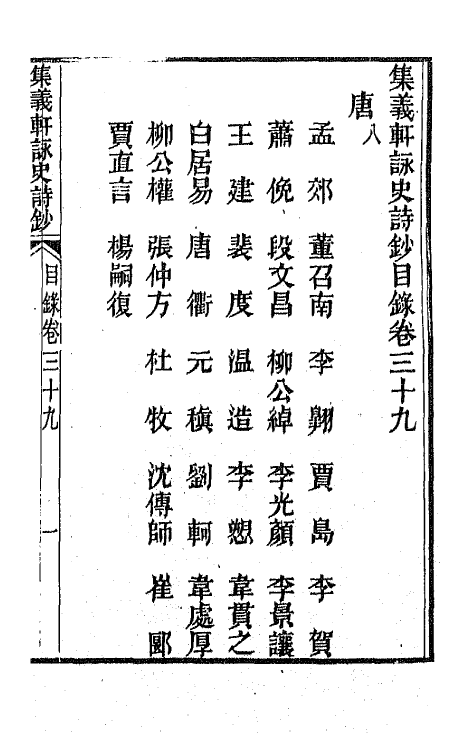 集義軒詠史詩鈔目錄卷三十九
唐八
孟郊 董召南 李翺 賈島 李賀
蕭俛 段文昌 柳公綽 李光顏 李景讓
王建 裴度 溫造 李愬 韋貫之
白居易 唐衢 元稹 劉軻 韋處厚
柳公權 張仲方 杜牧 沈傳師 崔郾
賈直言 楊嗣復
集義軒詠史詩鈔 目錄卷三十九 一